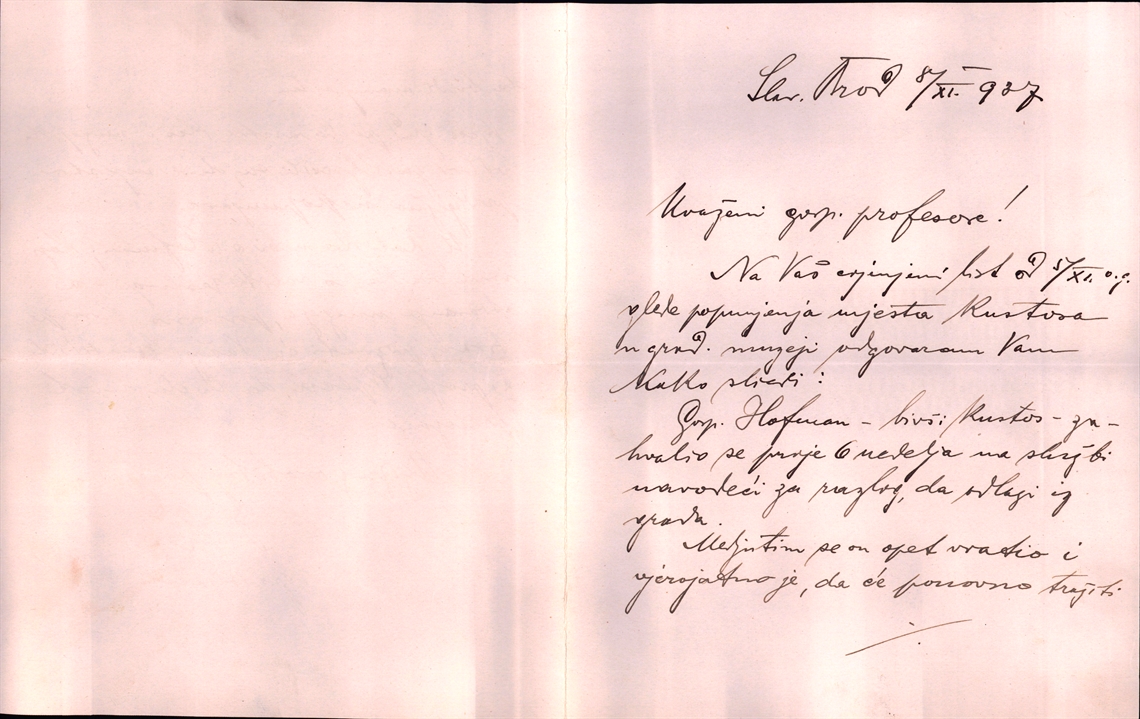 Slav. Brod 8/XI. 937
Uvaženi gosp. profesore!
Na Vaš cijenjeni list od 5/XI. o.g.
glede popunjenja mjesta Kustosa
u grad. muzeji odgovaram Vam
kako sliedi:
Gosp. Hofman - bivši Kustos - za-
hvalio se prije 6 nedelja na službi
navodeći za razlog, da odlazi iz
grada.
Medjutim se on opet vratio i
vjerojatno je, da će ponovno tražiti